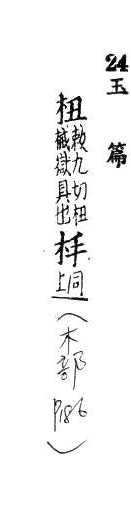 24 玉篇
杻敕九切杻械獄具也杽同上（木部 P186）